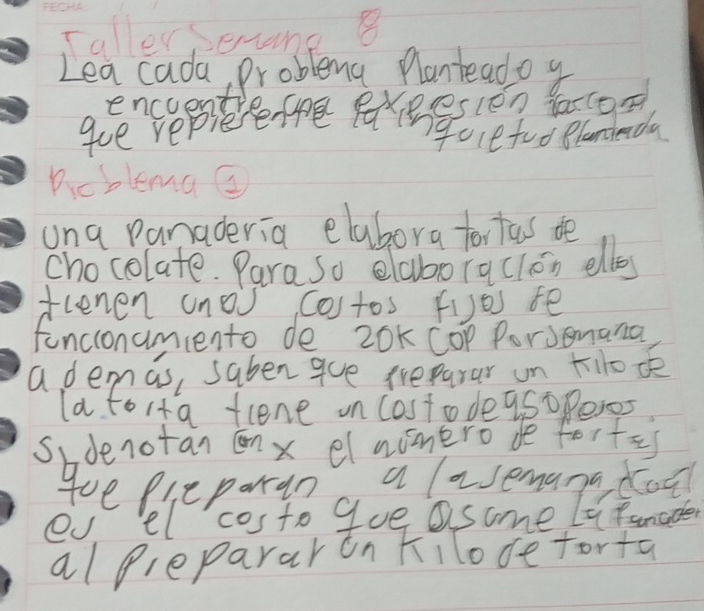 FECHA
Taller Semana 8
Lea cada problema Planteado y
encuentre una expresión
que represente la inquietud Planteada
Problema ①
una panadería elabora tortas de
chocolate. Para su elaboración ellos
tienen unos costos fijos de
funcionamiento de 20K COP Por semana,
además, saben que preparar un kilo de
la torta tiene un costo de
si denotan con x el número de tortas
que preparan a la semana, ¿cuál
es el costo que asume la
al preparar un kilo de torta